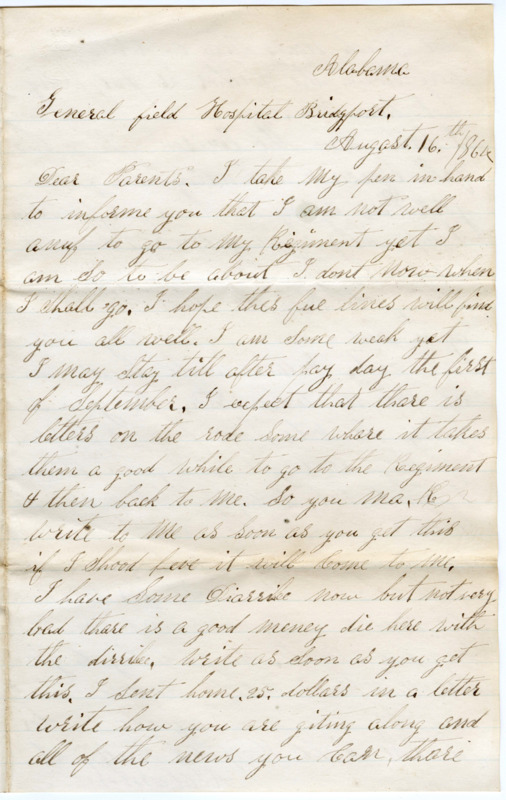 Alabama
General field Hospital Bridgport.
August. 16.th 1864
Dear Parents. I take my pen in hand
to informe you that I am not well
anuf to go to my Regiment yet I
am so to be about I dont now when
I shall go. I hope thes fue lines will find
you all well. I am some weak yet
I may stay till after pay day the first
of September. I expect that there is
letters on the rode some where it takes
them a good while to go to the Regiment
& then back to me. So you ma
write to me as soon as you get this
if I shood leve it will come to me.
I have some Diarrihe now but not very
bad thare is a good meney die here with
the dirrihe. write as soon as you get
this. I sent home. 25. dollars in a letter
write how you are giting along and
all of the news you can, thare